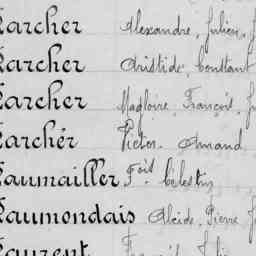 Larcher Alexandre, Julien, J
Larcher Aristide, Constant
Larcher Magloire, François, J
Larchér Victor. Amand
Laumailler Fois. Célestin
Laumondais Alcide, Pierre J
Laurent François, Julie